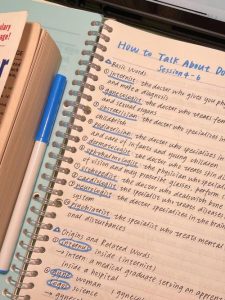 How to Talk About Do
Session 4-6
Basic Words
① internist: the doctor who gives you ph
and make a diagnosis
② gynecologist: the doctor who treats fem
and sexual organs
③ obstetrician: the doctor who specializes
④ pediatrician: the doctor who specializes in
and care of infants and young children
⑤ dermatologist: the doctor who treats skin di
⑥ ophthalmologist: the physician who specializ
of vision and may prescribe glasses, perform
⑦ orthopedist: the doctor who deals with bone
⑧ cardiologist: the doctor who treats diseases
⑨ neurologist: the doctor specializes in the brain
system
⑩ psychiatrist: the doctor who treats mental
onal disturbances
Origins and Related Words
① internus: inside (internist)
→ intern: a medical graduate serving an apprent
inside a hospital
② gyne: woman
science